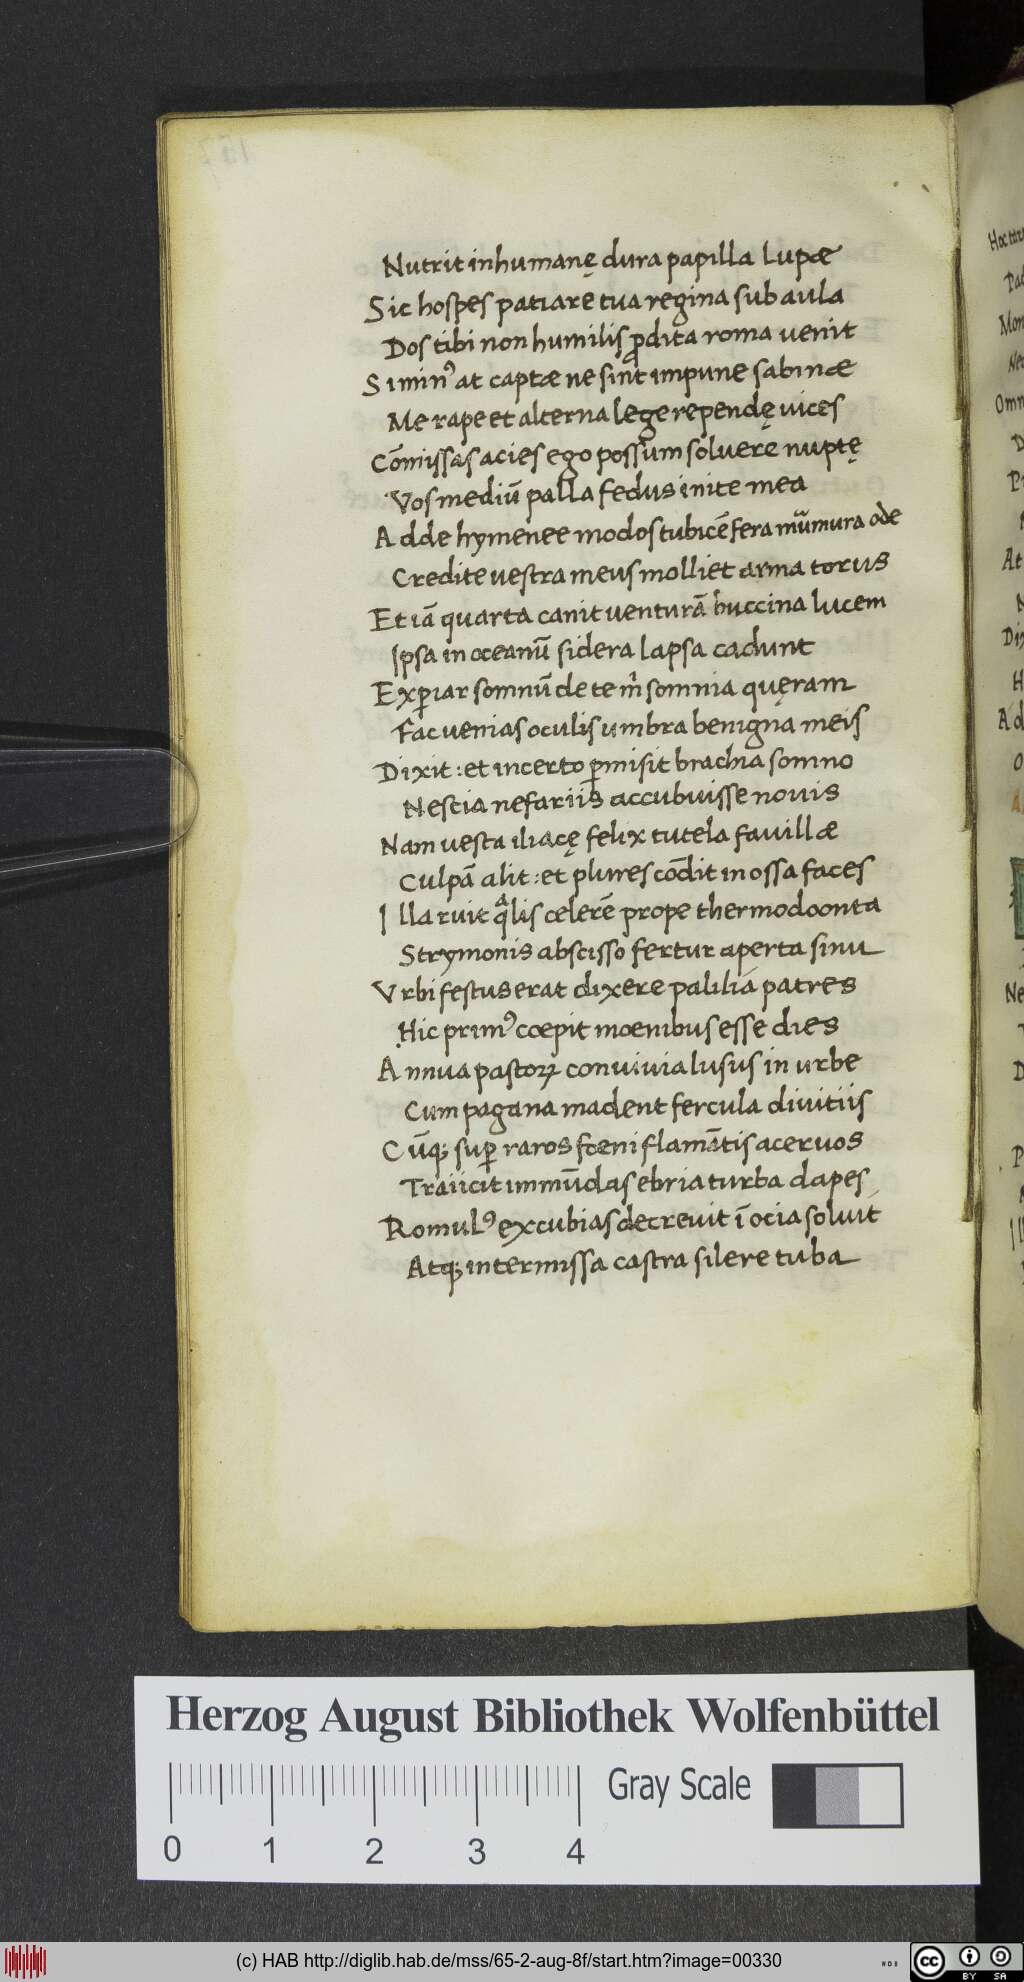 Nutrit inhumanę dura papilla lupæ
Sic hospes patiarẽ tua regina sub aula
Dos tibi non humilis ꝓdita roma venit
Si minꝰ at captæ ne sint impune sabinæ
Me rape et alterna lege rependę uices
Cõmissas acies ego possum soluerẽ nuptę
Vos mediũ palla fedus inite mea
Adde hymenee modos tubicẽ fera mũmura ode
Credite uestra meus molliet arma torus
Et iã quarta canit venturã buccina lucem
Ipsa in oceanũ sidera lapsa cadunt
Exꝑiar somnũ de te mͥ somnia quęram
Fac uenias oculis umbra benigna meis
Dixit: et incerto ꝑmisit brachia somno
Nescia nefariis accubuisse nouis
Nam vesta iliacę felix tutela fauillæ
Culpã alit: et plures cõdit in ossa faces
Illa ruit qᵃlis celerẽ prope thermodoonta
Strymonis abscisso fertur aperta sinu
Vrbi festus erat dixere palilia patres
Hic primꝰ coepit moenibus esse dies
Annua pastoꝝ conuiuia lusus in urbe
Cum pagana madent fercula diuitiis
Cũqꝫ suꝑ raros foeni flamãtis aceruos
Traiicit immũdas ebria turba dapes
Romulꝰ excubias decreuit ĩ ocia soluit
Atqꝫ intermissa castra silere tuba
Hoc
Herzog August Bibliothek Wolfenbüttel
Gray Scale
0 1 2 3 4
(c) HAB http://diglib.hab.de/mss/65-2-aug-8f/start.htm?image=00330
cc BY SA